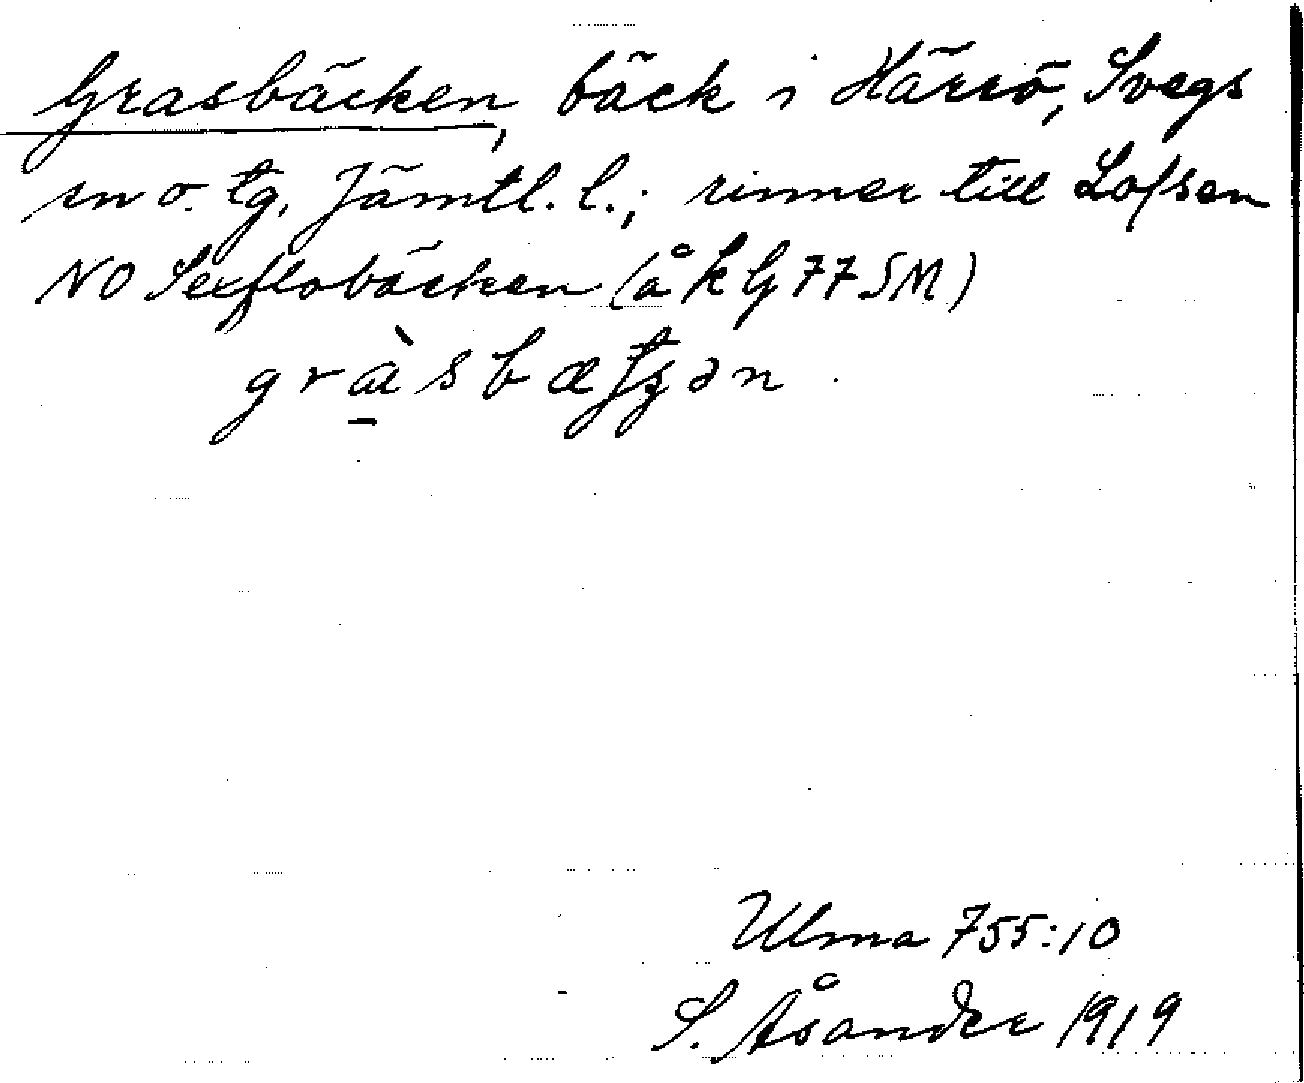 Grasbäcken, bäck i Härrö, Svegs
sn o. tg, Jämtl. l.; rinner till Lofsen
NO Sexflobäcken (å k G77SM)
gràsbæt̯ʂən
Ulma 755:10
S. Åsander 1919